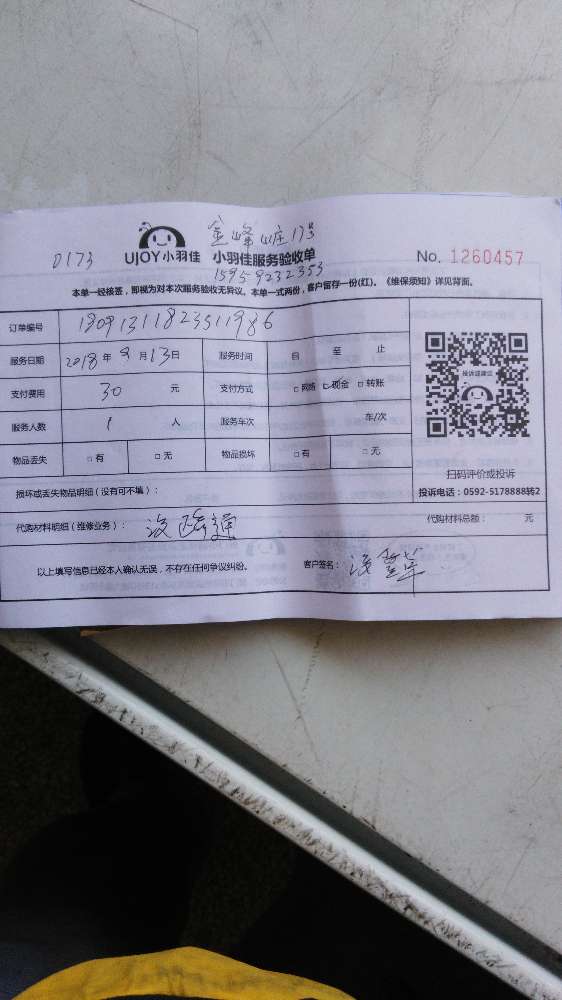 金峰山庄173
0173 UJOY小羽佳 小羽佳服务验收单 No. 1260457
15959232353
本单一经核签，即视为对本次服务验收无异议。本单一式两份，客户留存一份(红)。《维保须知》详见背面。
订单编号 1809131182351986
服务日期 2018年9月13日 服务时间 自 至 止
支付费用 30 元 支付方式 □网络 ☑现金 □转账
服务人数 1 人 服务车次 车/次
物品丢失 □有 □无 物品损坏 □有 □无
扫码评价或投诉
投诉电话：0592-5178888转2
损坏或丢失物品明细（没有可不填）：
代购材料明细（维修业务）： 没疏通 代购材料总额： 元
以上填写信息已经本人确认无误，不存在任何争议纠纷。 客户签名：